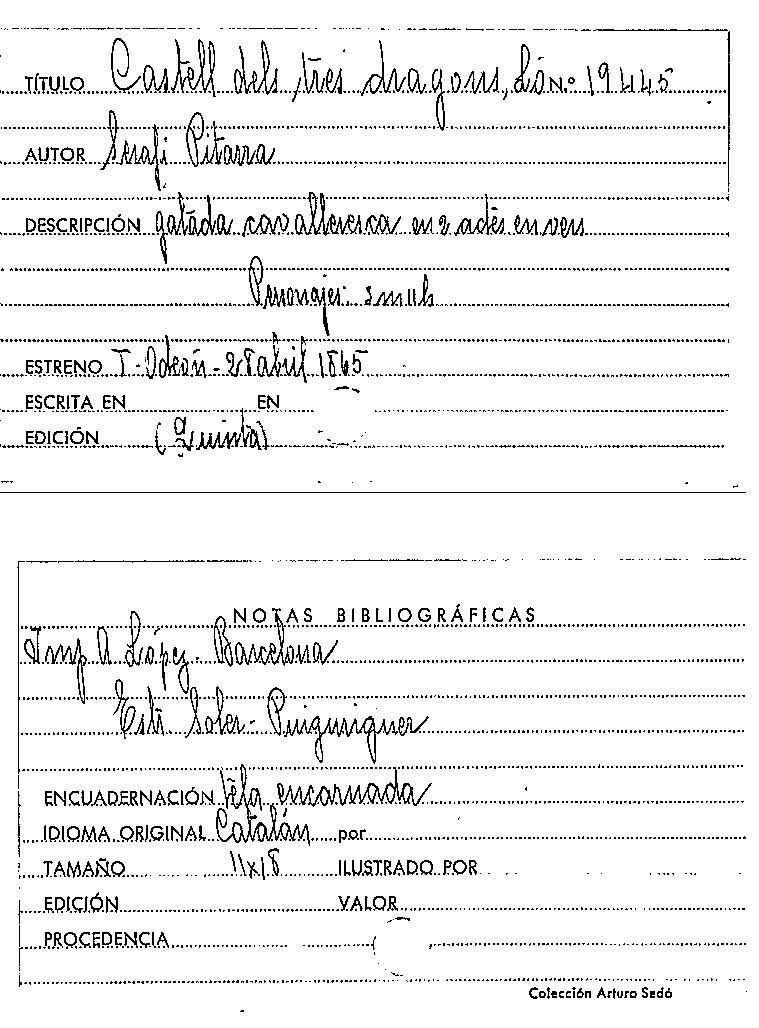 TÍTULO Castell dels tres dragons, Lo N.º 19445
AUTOR Serafi Pitarra
DESCRIPCIÓN gatada cavalleresca en 2 actes en vers
Personajes:
ESTRENO T. Odeón - 28 abril 1865
ESCRITA EN EN
EDICIÓN (Quinta)
NOTAS BIBLIOGRÁFICAS
Imp A López. Barcelona
Est. Soler - Puigmiquer
ENCUADERNACIÓN Tela encarnada
IDIOMA ORIGINAL Catalán por
TAMAÑO 11x18 ILUSTRADO POR
EDICIÓN VALOR
PROCEDENCIA
Colección Arturo Sedó